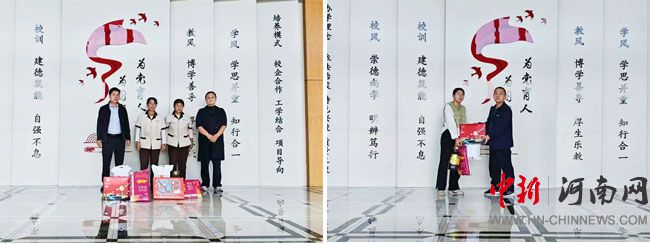 校训 建德筑能 自强不息
为党育人
为
教风 博学善导
学风 学思并重 知行合一
培养模式 校企合作 工学结合 项目导向
校风 崇德尚学 明辨笃行
校训 建德筑能 自强不息
为党育人
为国
教风 博学善导 厚生乐教
学风 学思并重 知行合一
中新 河南网
WWW.HN-CHINNEWS.COM